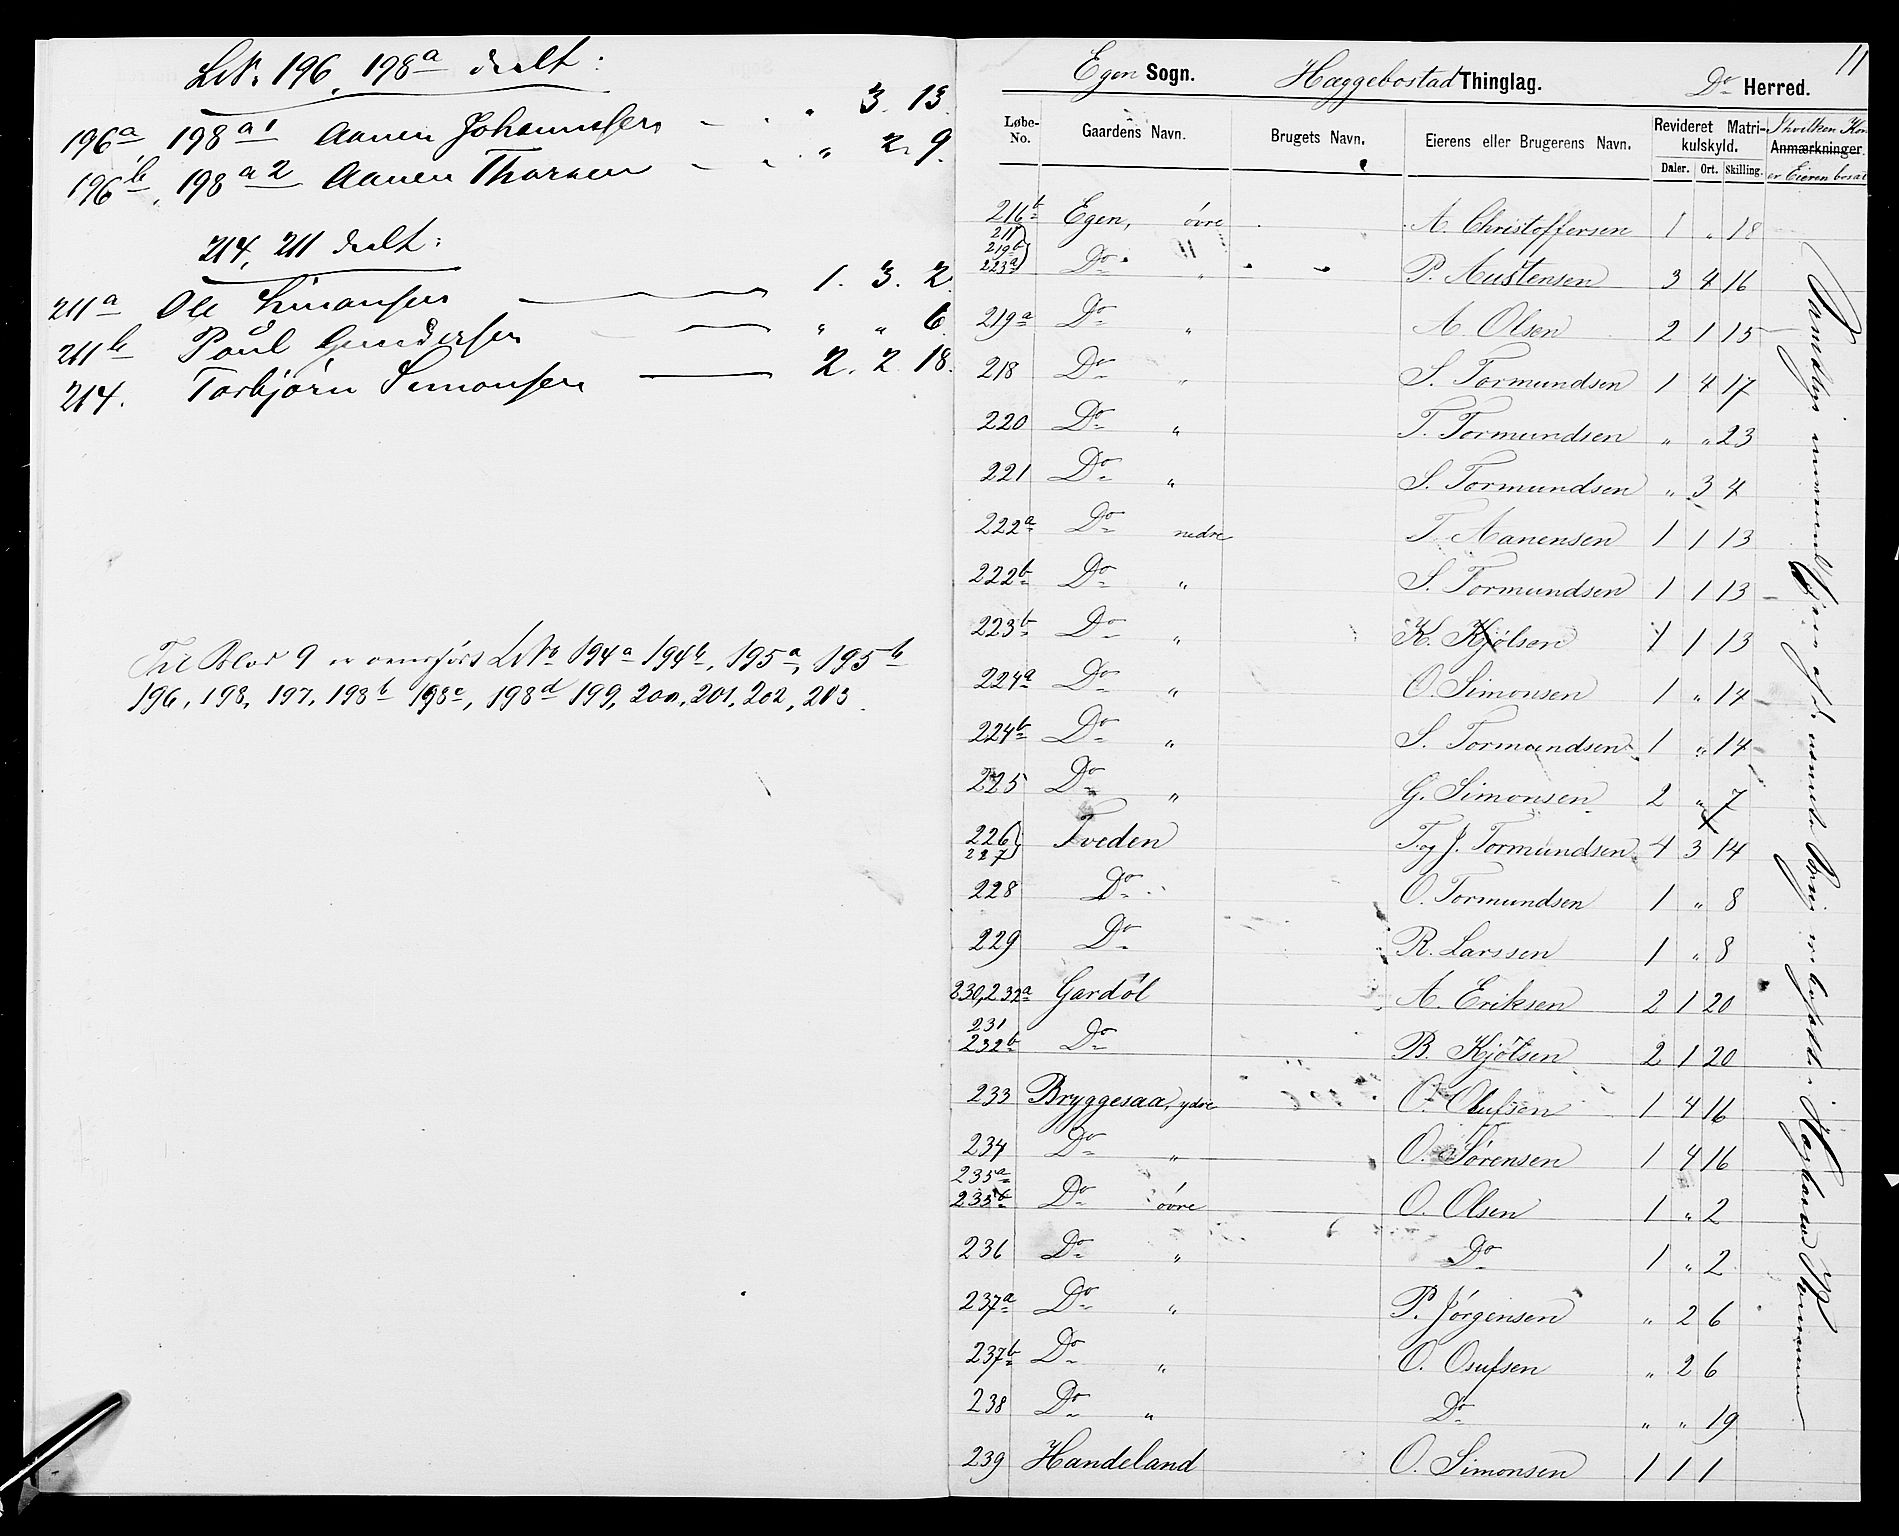 L.N. 196, 198a delt:
196a 198a1 Aanen Johannesen — " 3. 13.
196b, 198a2 Aanen Tharsen — " 2. 9.
214, 211 delt:
211a Ole Simonsen — 1. 3. 2.
211b Paul Gundersen — " " 6
214. Torbjørn Simonsen — 2. 2 18.
Til Blad 9 er overført L.No 194a 194b, 195a, 195b
196, 198, 197, 198b 198c, 198d 199, 200, 201, 202, 203.
11
Egen Sogn. Hæggebostad Thinglag. Do Herred.
Løbe-No. Gaardens Navn. Brugets Navn. Eierens eller Brugerens Navn. Revideret Matrikulskyld. Daler. Ort. Skilling. Anmærkninger. I hvilken Kom er Eieren bosat
216b Egen, øvre A. Christoffersen 1 " 18
217 219b 223a Do " P. Austensen 3 4 16
219a Do " A. Olsen 2 1 15
218 Do " S. Tormundsen 1 4 17
220 Do " T. Tormundsen " " 23
221 Do " S. Tormundsen " 3 4
222a Do nedre T. Aanensen 1 1 13
222b Do " S. Tormundsen 1 1 13
223b Do " K. Kjølsen 1 1 13
224a Do " O. Simonsen 1 " 14
224b Do " S. Tormundsen 1 " 14
225 Do " G. Simonsen 2 " 7
226 227 Tveden T. og J. Tormundsen 4 3 14
228 Do O. Tormundsen 1 " 8
229 Do R. Larssen 1 " 8
230, 232a Gardøl A. Eriksen 2 1 20
231 232b Do B. Kjølsen 2 1 20
233 Bryggesaa, ydre O. Olufsen 1 4 16
234 Do " O. Sørensen 1 4 16
235a 235b Do øvre O. Olsen 1 " 2
236 Do " Do 1 " 2
237a Do " P. Jørgensen " 2 6
237b Do " O. Osufsen " 2 6
238 Do " Do " " 19
239 Handeland O. Simonsen 1 1 1